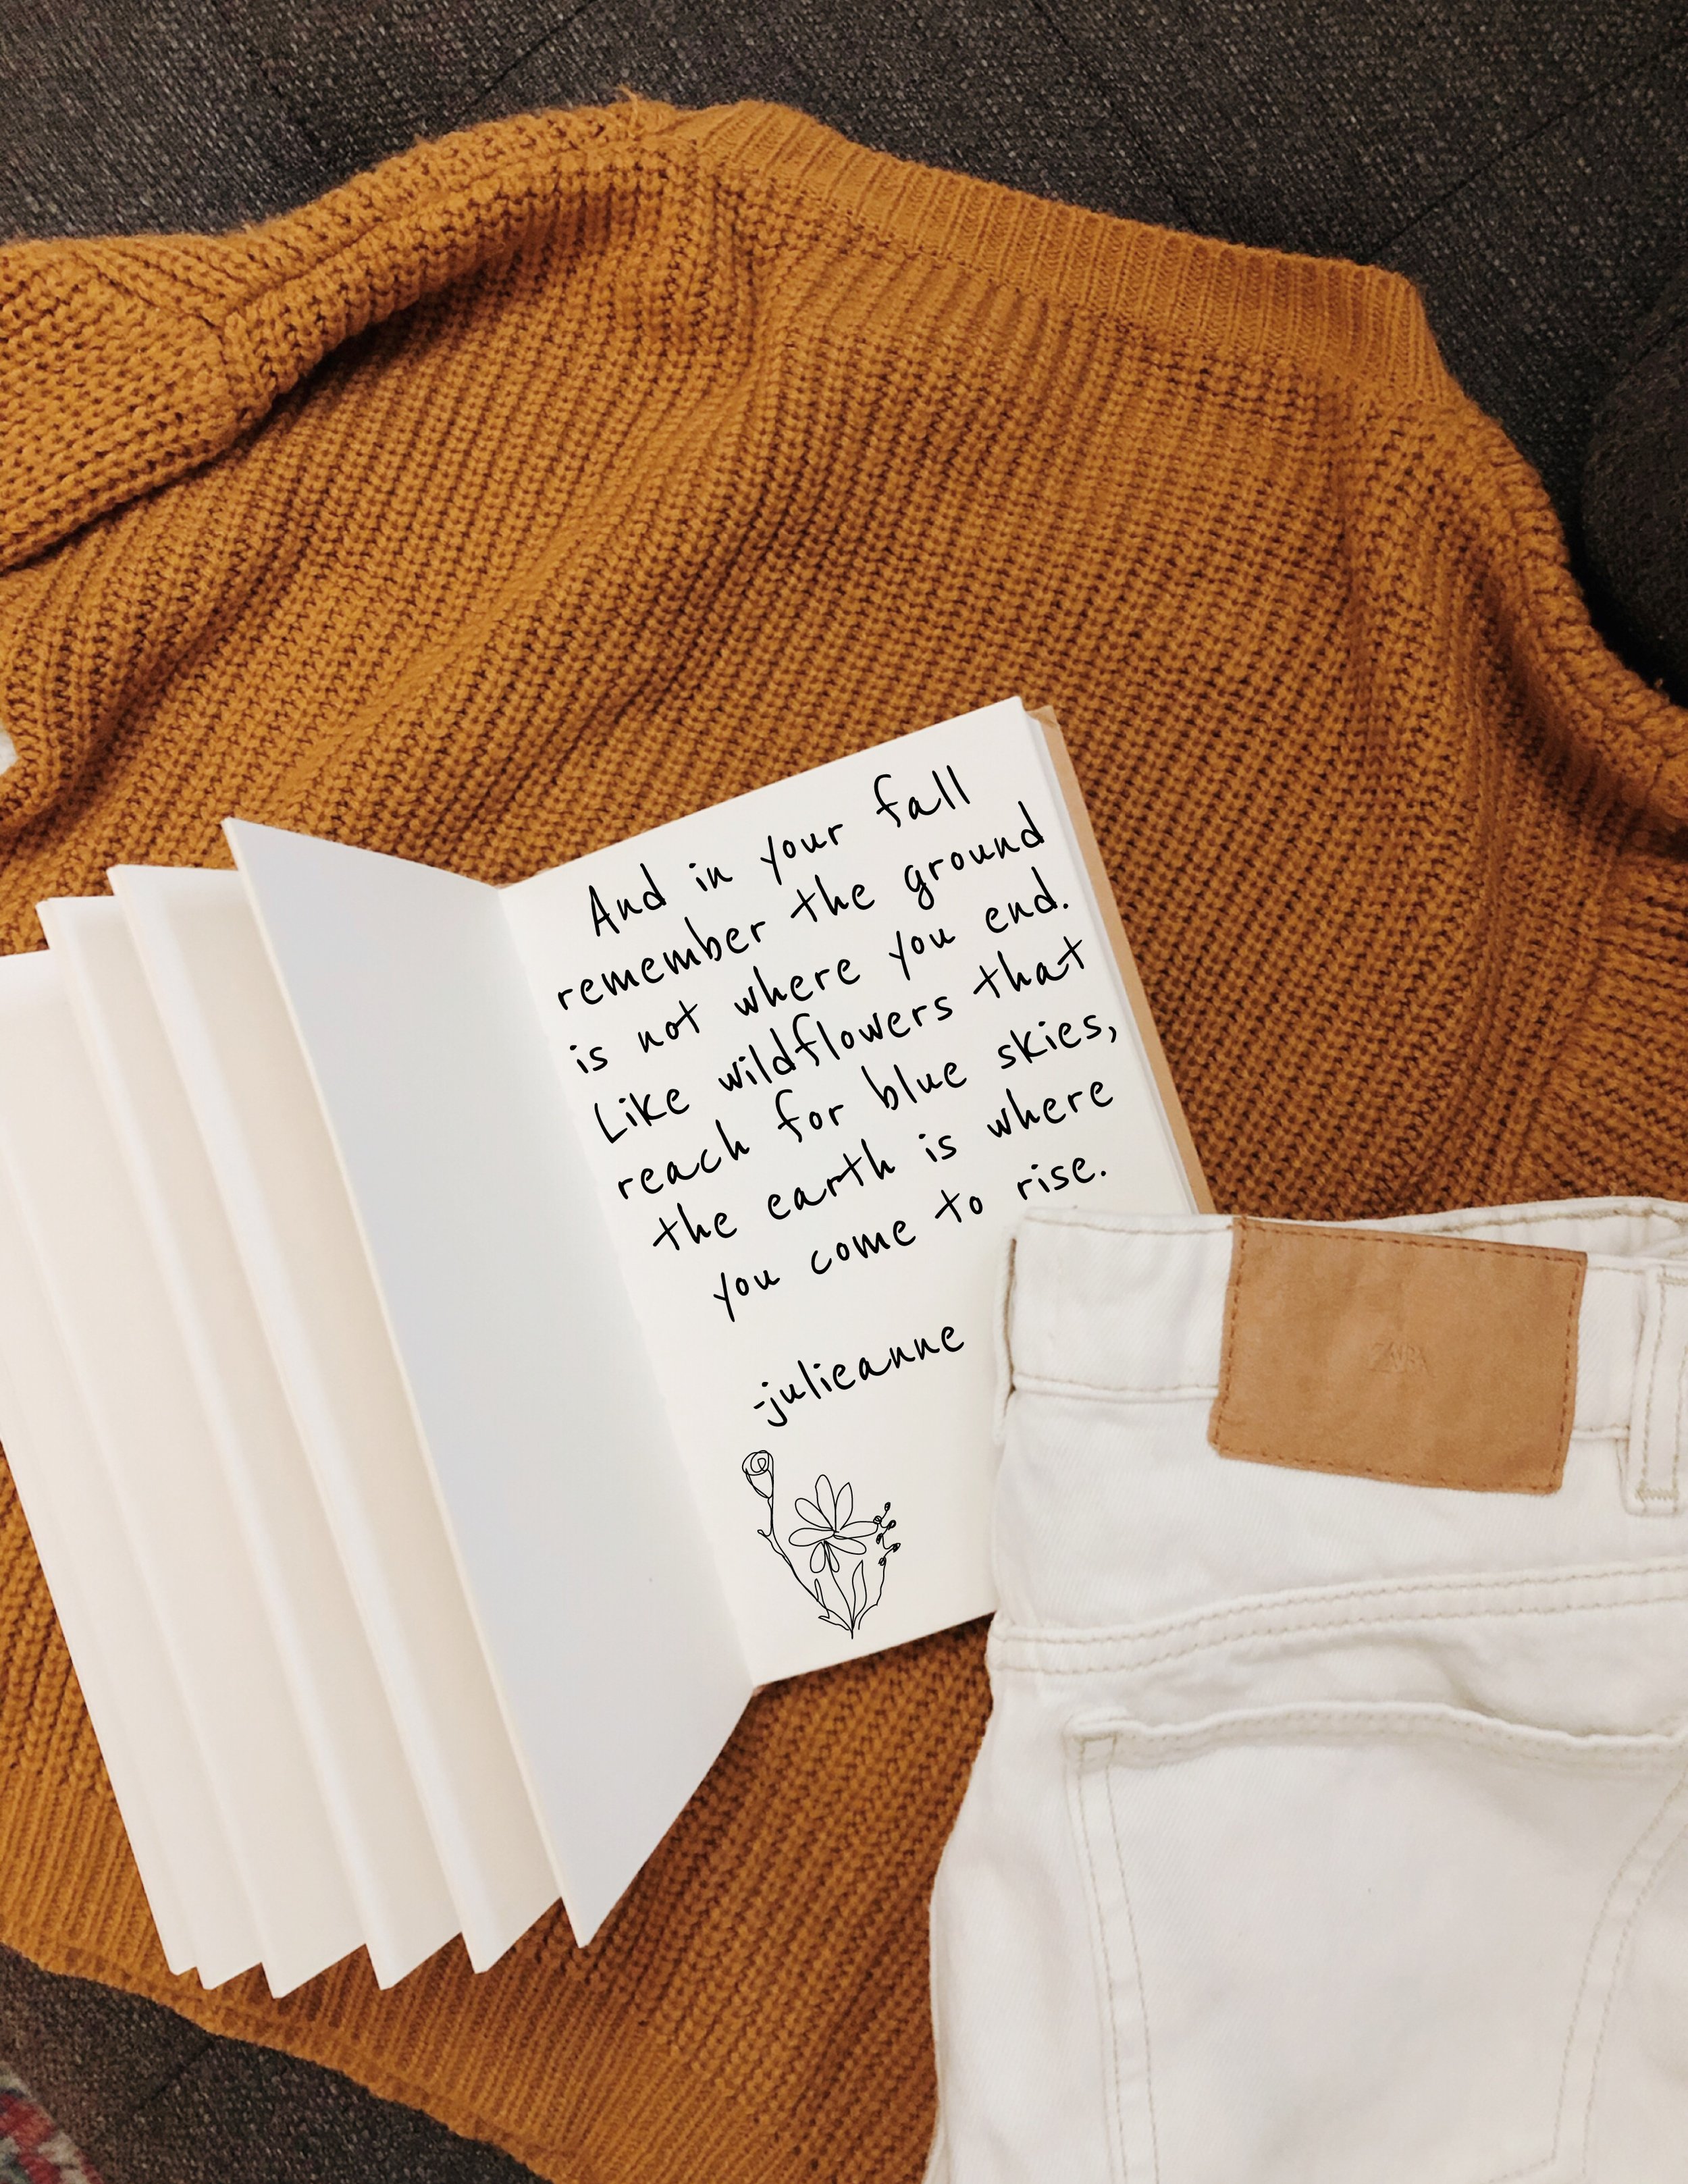 And in your fall
remember the ground
is not where you end.
Like wildflowers that
reach for blue skies,
the earth is where
you come to rise.
-julieanne
ZARA